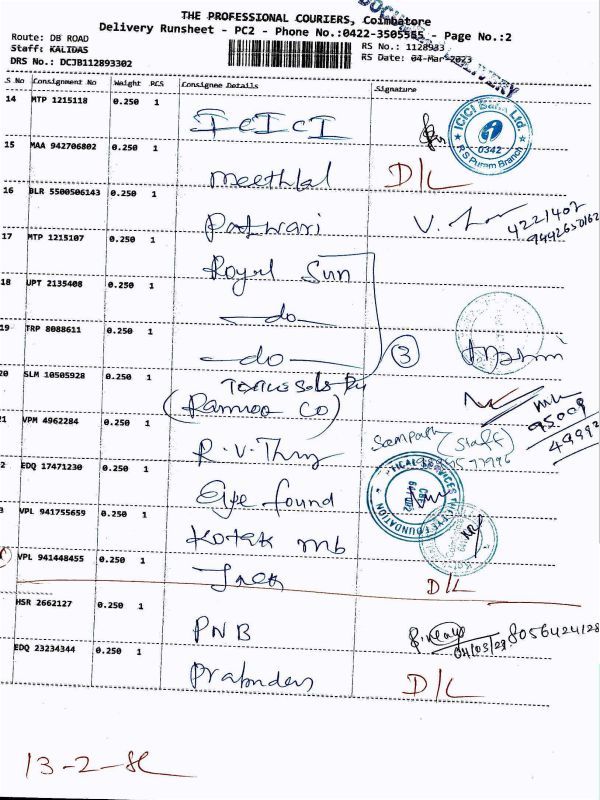 THE PROFESSIONAL COURIERS, Coimbatore
Delivery Runsheet - PC2 - Phone No.:0422-3505555 - Page No.:2
Route: DB ROAD
Staff: KALIDAS
DRS No.: DCJB112893302
RS No.: 1128933
RS Date: 04-Mar-2023
S No Consignment No Weight PCS Consignee Details Signature
14 MTP 1215118 0.250 1 ICICI
ICICI Bank Ltd. 0342 R S Puram Branch
15 MAA 942706802 0.250 1 Meethlal D/L
16 BLR 5500506143 0.250 1 Patwari V. 4221402
9442630162
17 MTP 1215107 0.250 1 Royal Sun
18 UPT 2135408 0.250 1 do
19 TRP 8088611 0.250 1 do 3
20 SLM 10505928 0.250 1 (Ramroo Co) 95009
49992
21 VPM 4962284 0.250 1 R.V. Sampath (Staff)
2 EDQ 17471230 0.250 1 Eye found
3 VPL 941755659 0.250 1 Kotak mb
VPL 941448455 0.250 1 D/L
HSR 2662127 0.250 1 PNB 8056424128
04/03/23
EDQ 23234344 0.250 1 D/L
13-2-